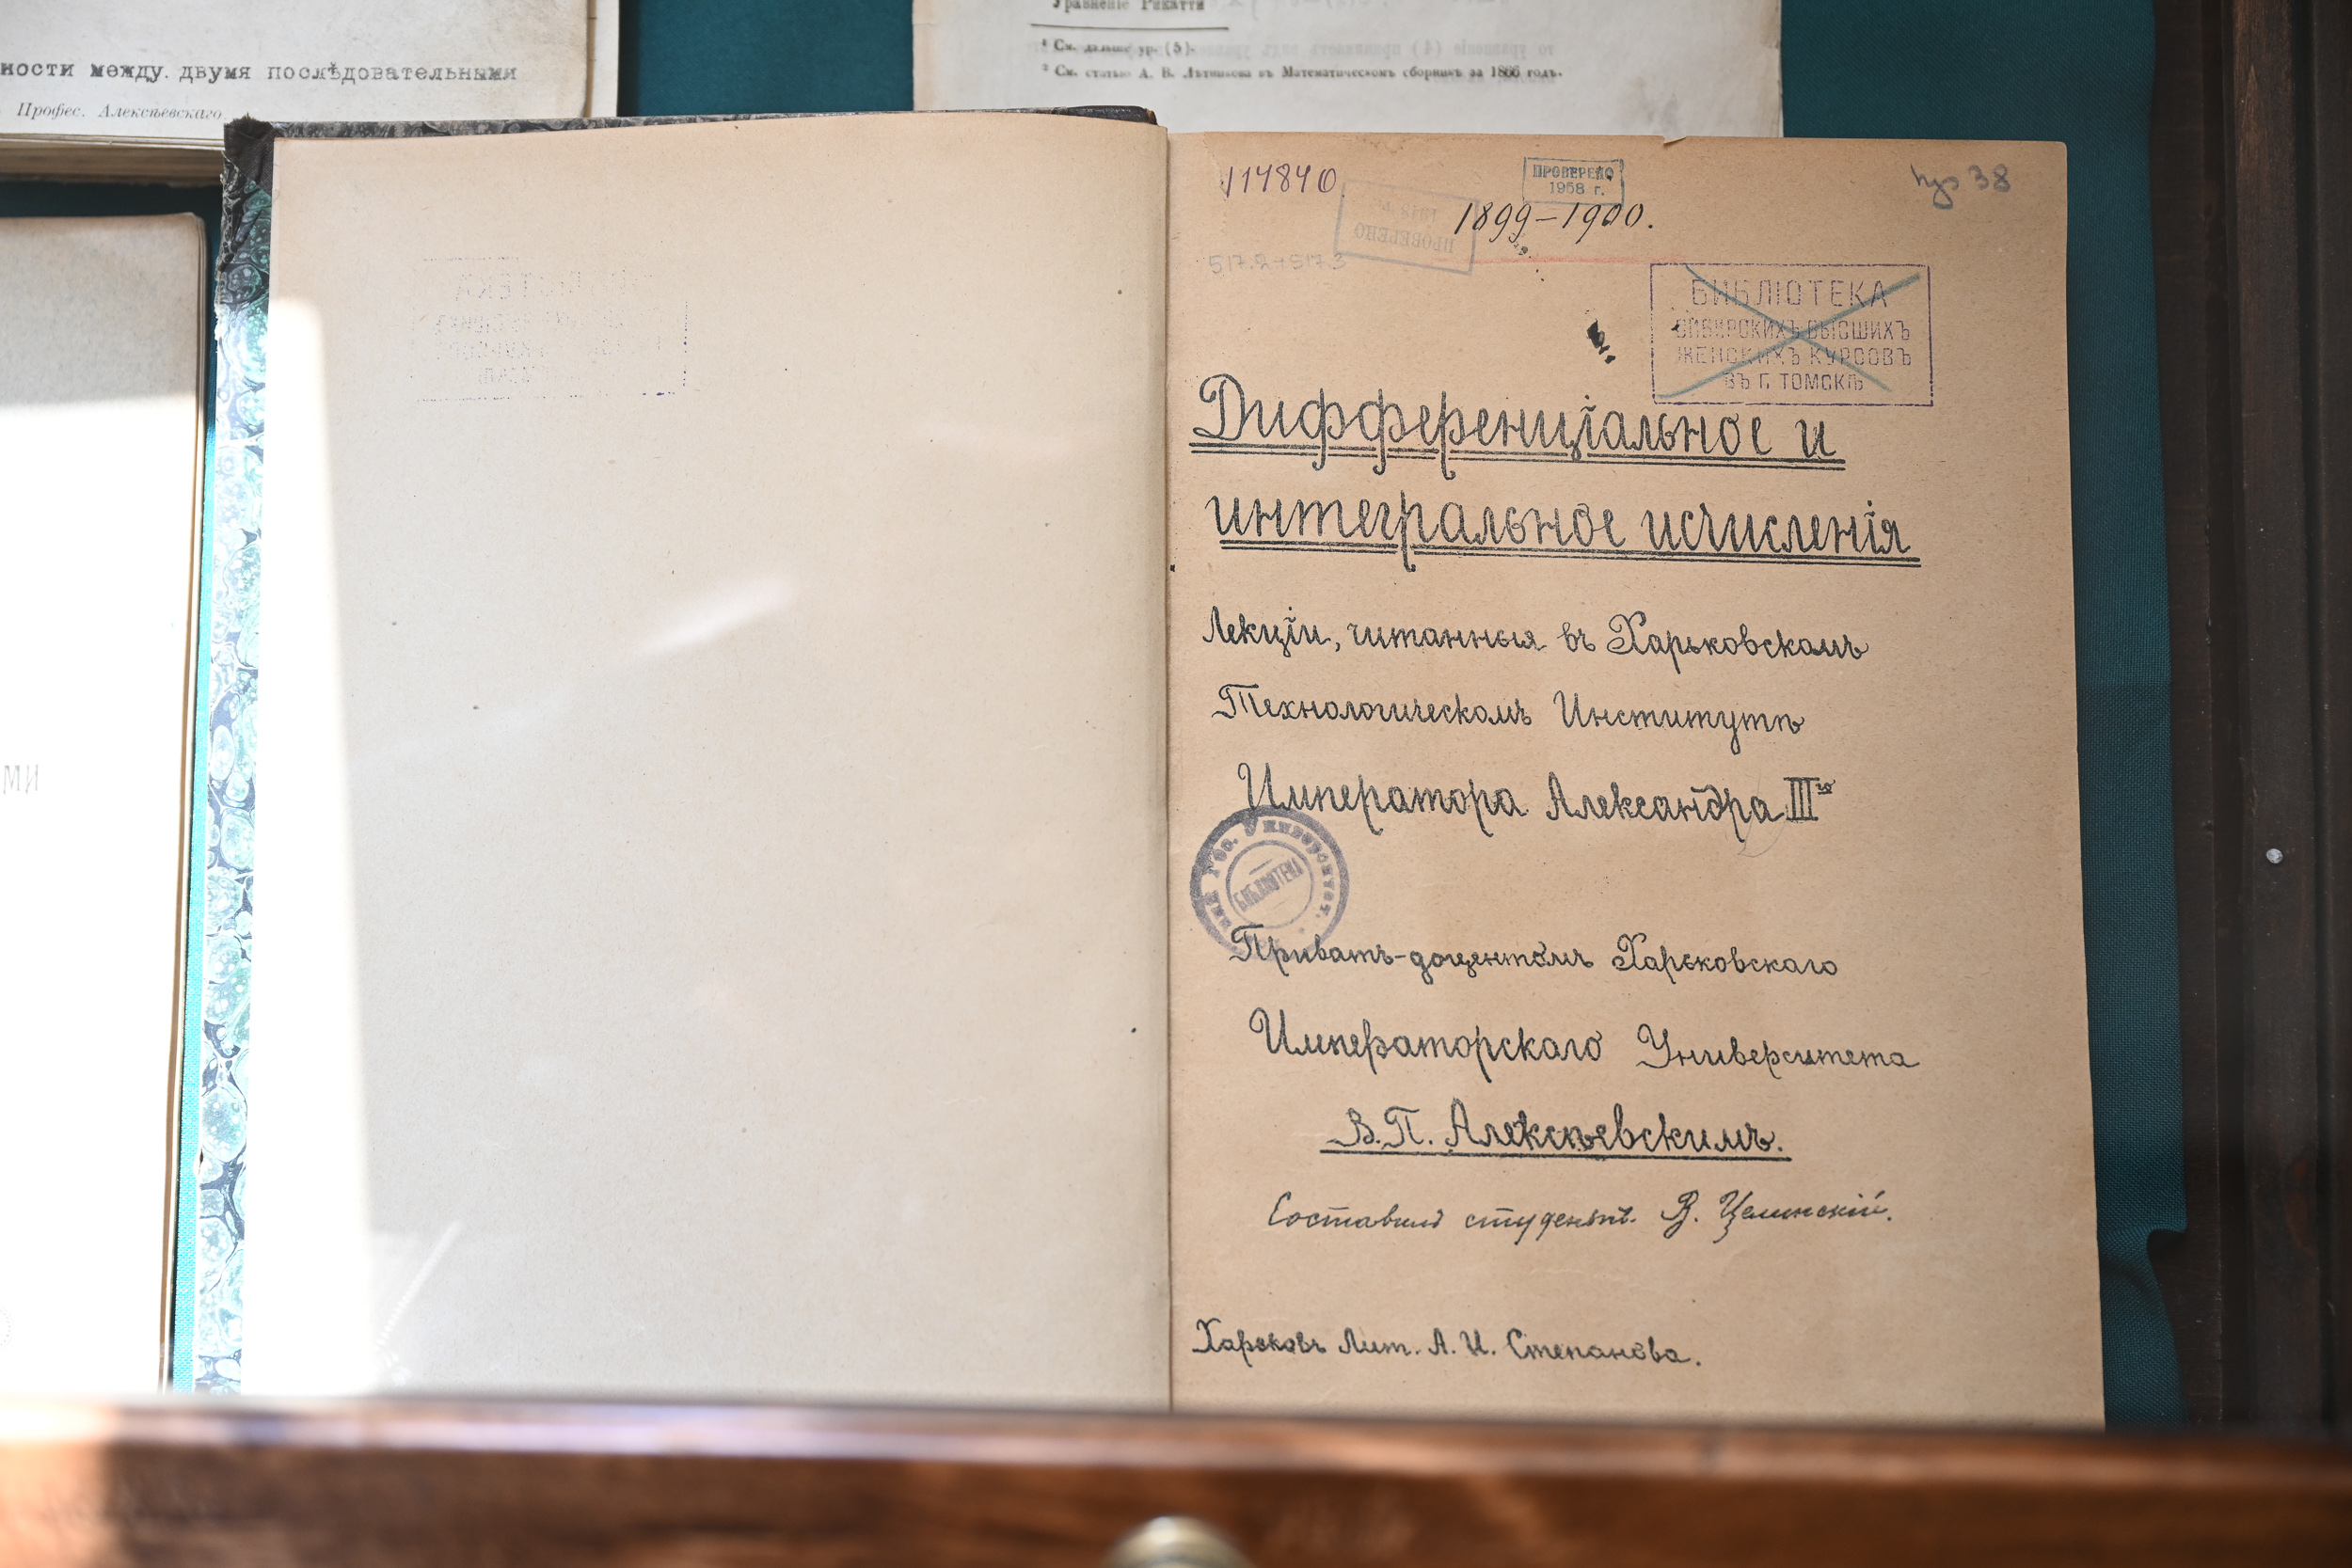 ности между двумя послѣдовательными
Профес. Алексѣевскаго
Уравненіе Рикатти
¹ См. дальше ур. (5).
² См. статью А. В. Лѣтникова въ Математическомъ сборникѣ за 1866 годъ.
МИ
114840
ПРОВЕРЕНО
1958 г.
1899–1900.
ПРОВЕРЕНО
517.2+517.3
38
БИБЛІОТЕКА
СИБИРСКИХЪ ВЫСШИХЪ
ЖЕНСКИХЪ КУРСОВЪ
ВЪ Г. ТОМСКѢ
Дифференціальное и
интегральное исчисленія
Лекціи, читанныя въ Харьковскомъ
Технологическомъ Институтѣ
Императора Александра III го
Гос. Университет.
БИБЛИОТЕКА
Приватъ-доцентомъ Харьковскаго
Императорскаго Университета
В. П. Алексѣевскимъ.
Составилъ студентъ В. Целинскій.
Харьковъ Лит. А. И. Степанова.